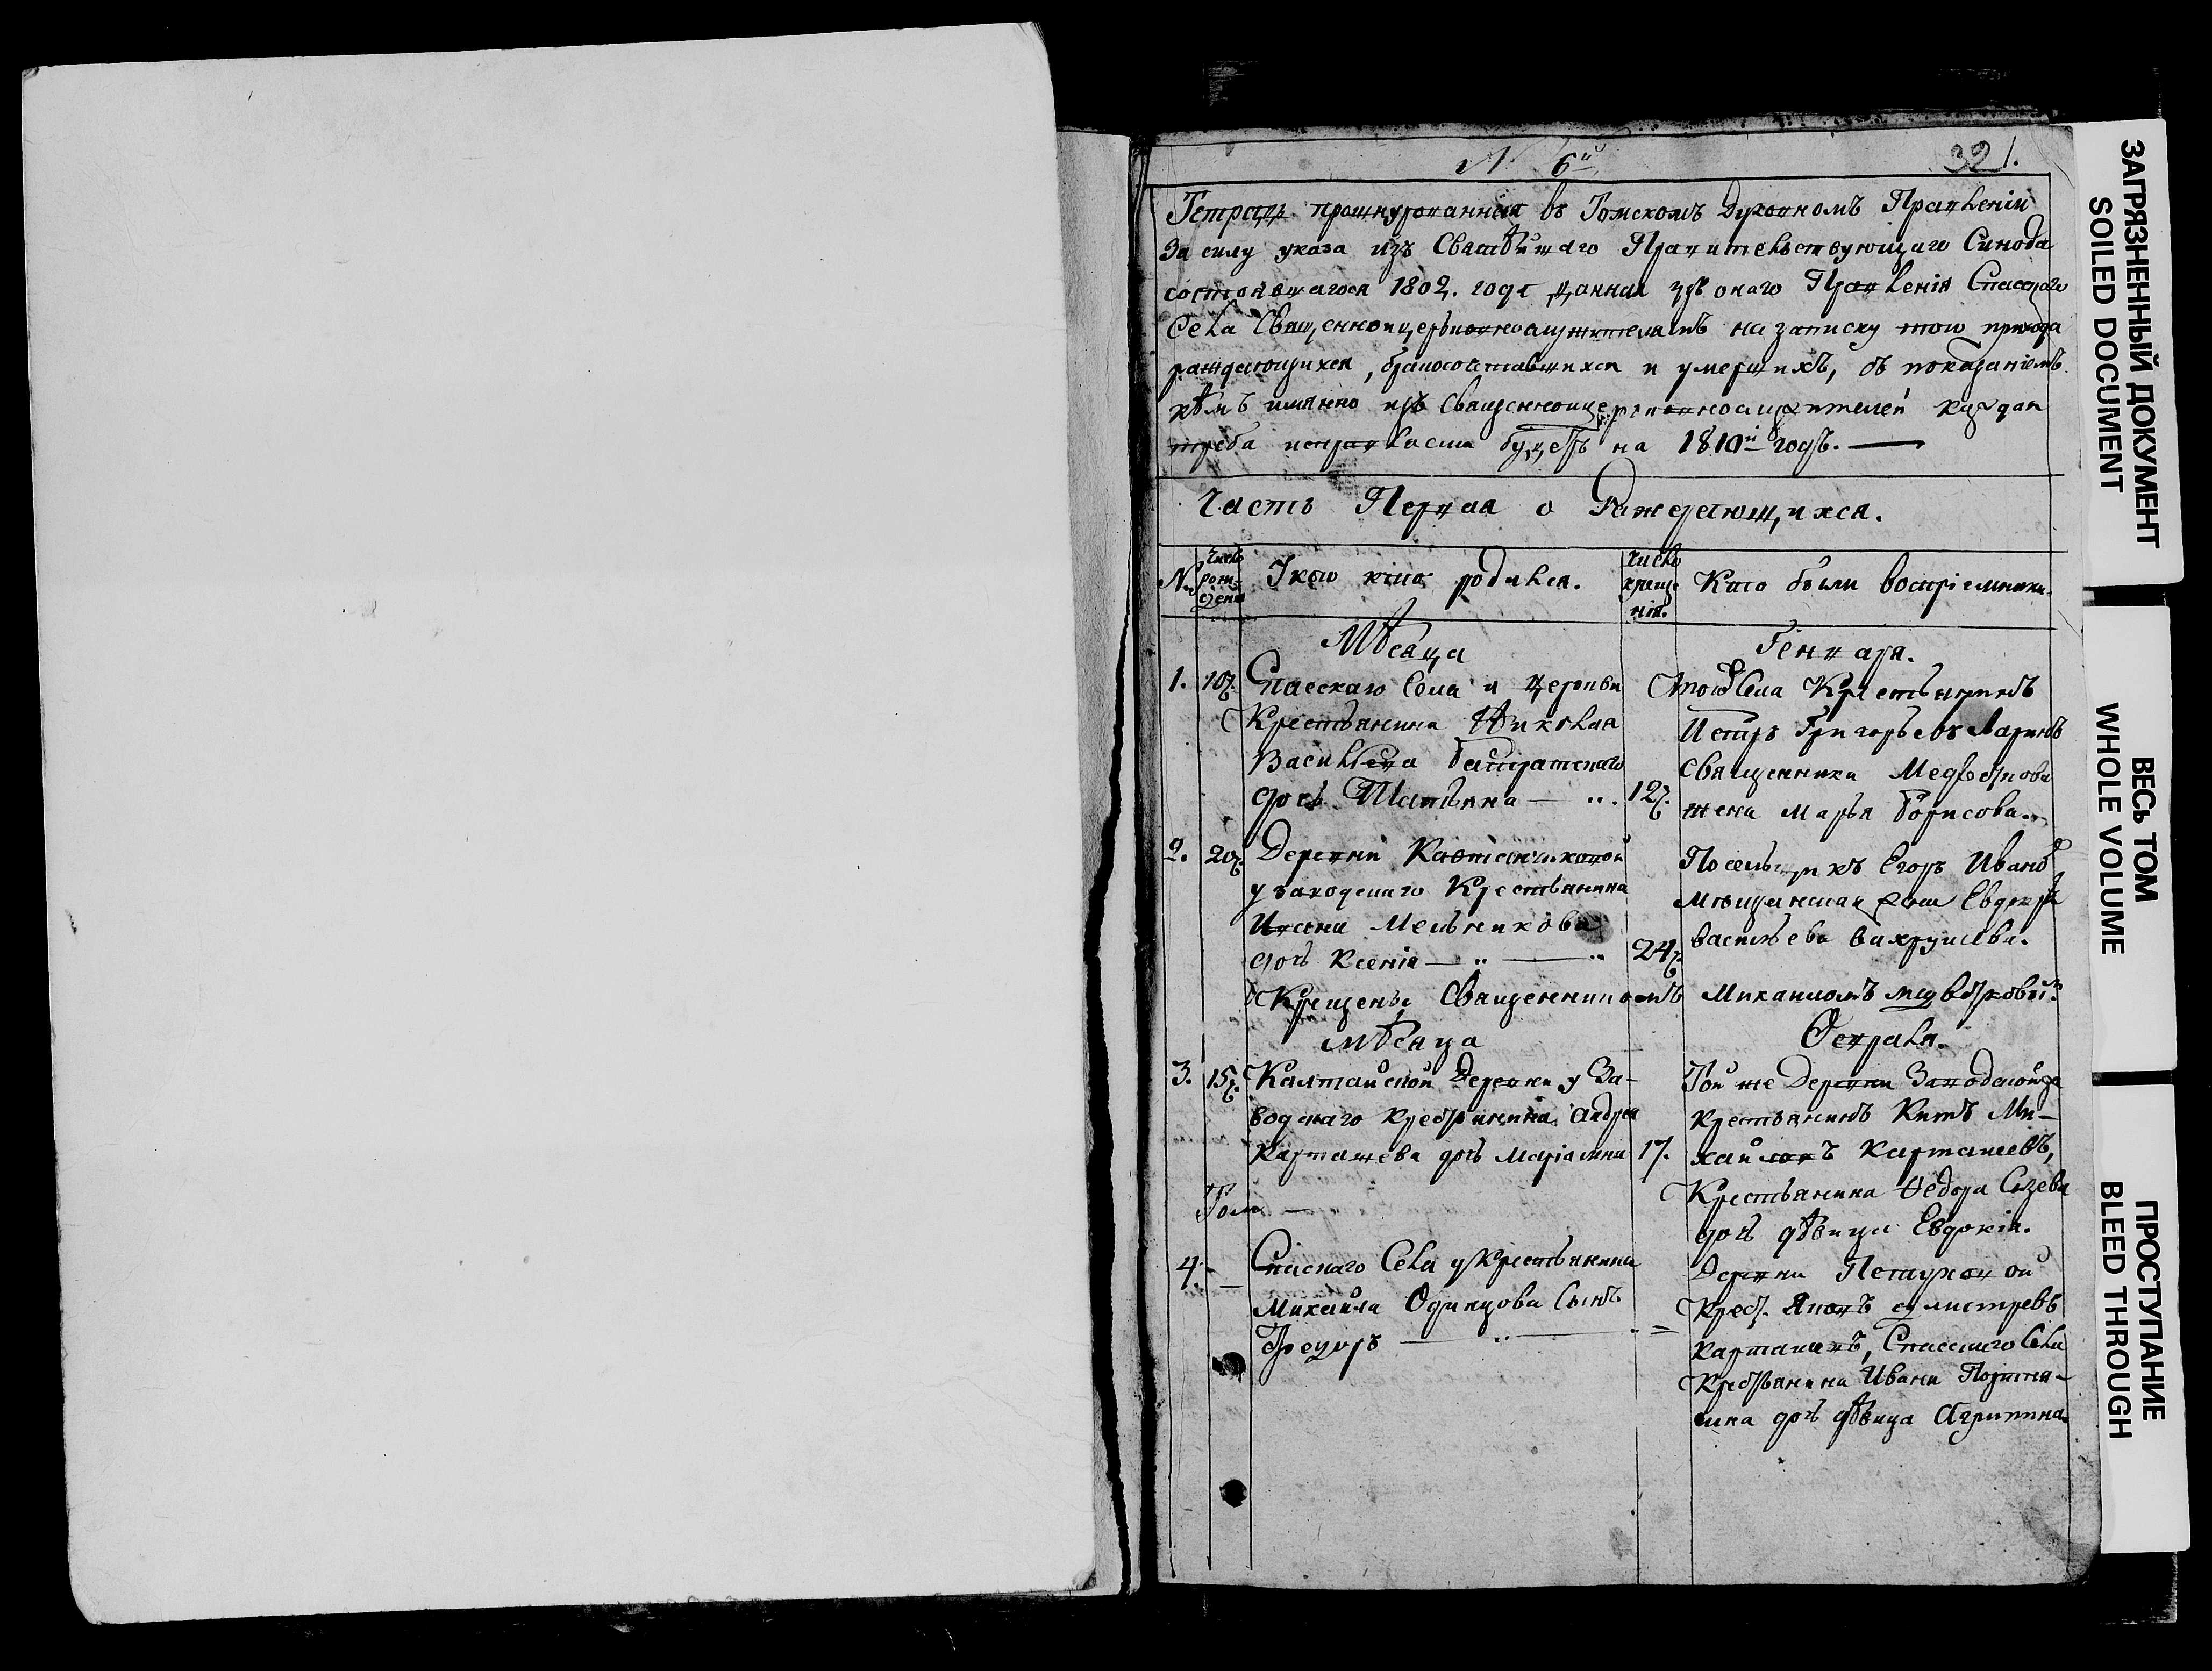 N 6й
321.
Тетрадь прошнурованная въ Томскомъ Духовномъ Правленіи
За силу указа изъ Святѣйшаго Правительствующаго Синода
состоявшагося 1802. года данная изъ онаго Правленія Спасскаго
Села Священноцерковнослужителямъ на записку той прихода
раждающихся, бракосочтавшихся и умершихъ, съ показаніемъ
кѣмъ имянно изъ Священноцерковнослужителей каждая
треба исправласта будетъ на 1810й годъ. —
Часть Первая о Раждающихся.
№ Число рожденія
Укого кто родился.
Число крещенія.
Кто были воспріемники
Мѣсяца Генваря.
1. 10. Спасскаго села и церкви
Крестьянина Николая
Васильева
дочь Татьяна — 12.
тойже села Крестьянинъ
Петръ Григорьевъ Ларинъ
священника Медвѣдкова
жена Марья Борисова.
2. 20. Деревни
у заводскаго Крестьянина
Ивана Мельникова
дочь Ксенія — 24.
Посельщикъ Егоръ Иванъ
мѣщанская Евдокія
васильева вахрушева.
Крещены Священникомъ Михаиломъ медвѣдковымъ.
мѣсяца Февраля.
3. 15. Калтайской Деревни у За-
водскаго крестьянина Андрея
Карташева дочь Маріамна 17.
Той же Деревни Заводской
крестьянинъ Китъ Ми-
хайловъ Карташевъ,
Крестьянина Федора Сизева
дочь дѣвица Евдокія.
Томъ —
4. — Спаскаго Села у Крестьянина
Михайла Одинцова сынъ
Феодоръ —
Деревни Петуховой
Крест. Яковъ
карташевъ, Спасскаго Села
Крестьянина Ивана
дочь дѣвица Агрипина.
ЗАГРЯЗНЕННЫЙ ДОКУМЕНТ
SOILED DOCUMENT
ВЕСЬ ТОМ
WHOLE VOLUME
ПРОСТУПАНИЕ
BLEED THROUGH